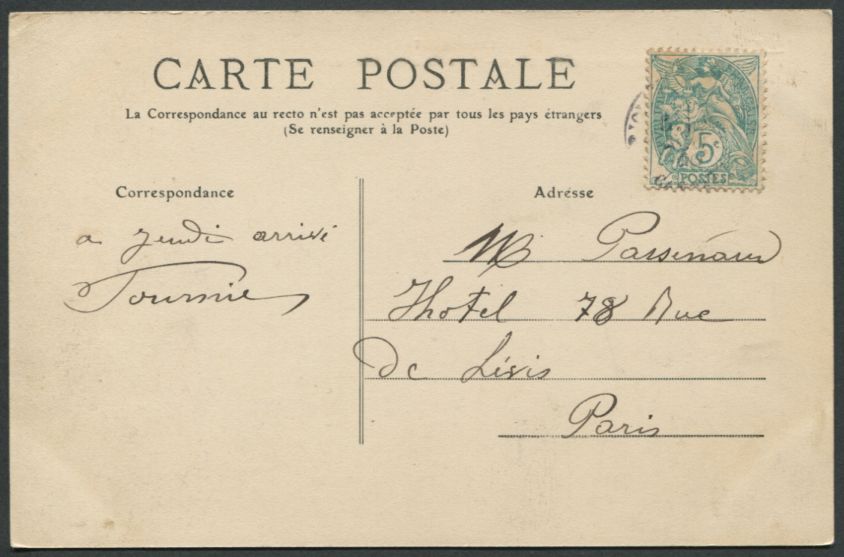 CARTE POSTALE
La Correspondance au recto n'est pas acceptée par tous les pays étrangers
(Se renseigner à la Poste)
Correspondance
Adresse
a jeudi arrivé
Tournie
M Parsenaud
Jhotel 78 Rue
De Lévis
Paris
5c
POSTES